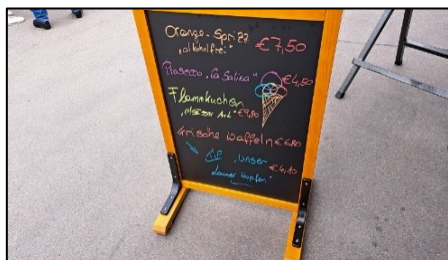 Orange-Spritz €7,50
„alkoholfrei"
Prosecco „La Salina" €4,50
Flammkuchen
„elsässer Art" €9,80
frische Waffeln €6,80
„unser €4,10